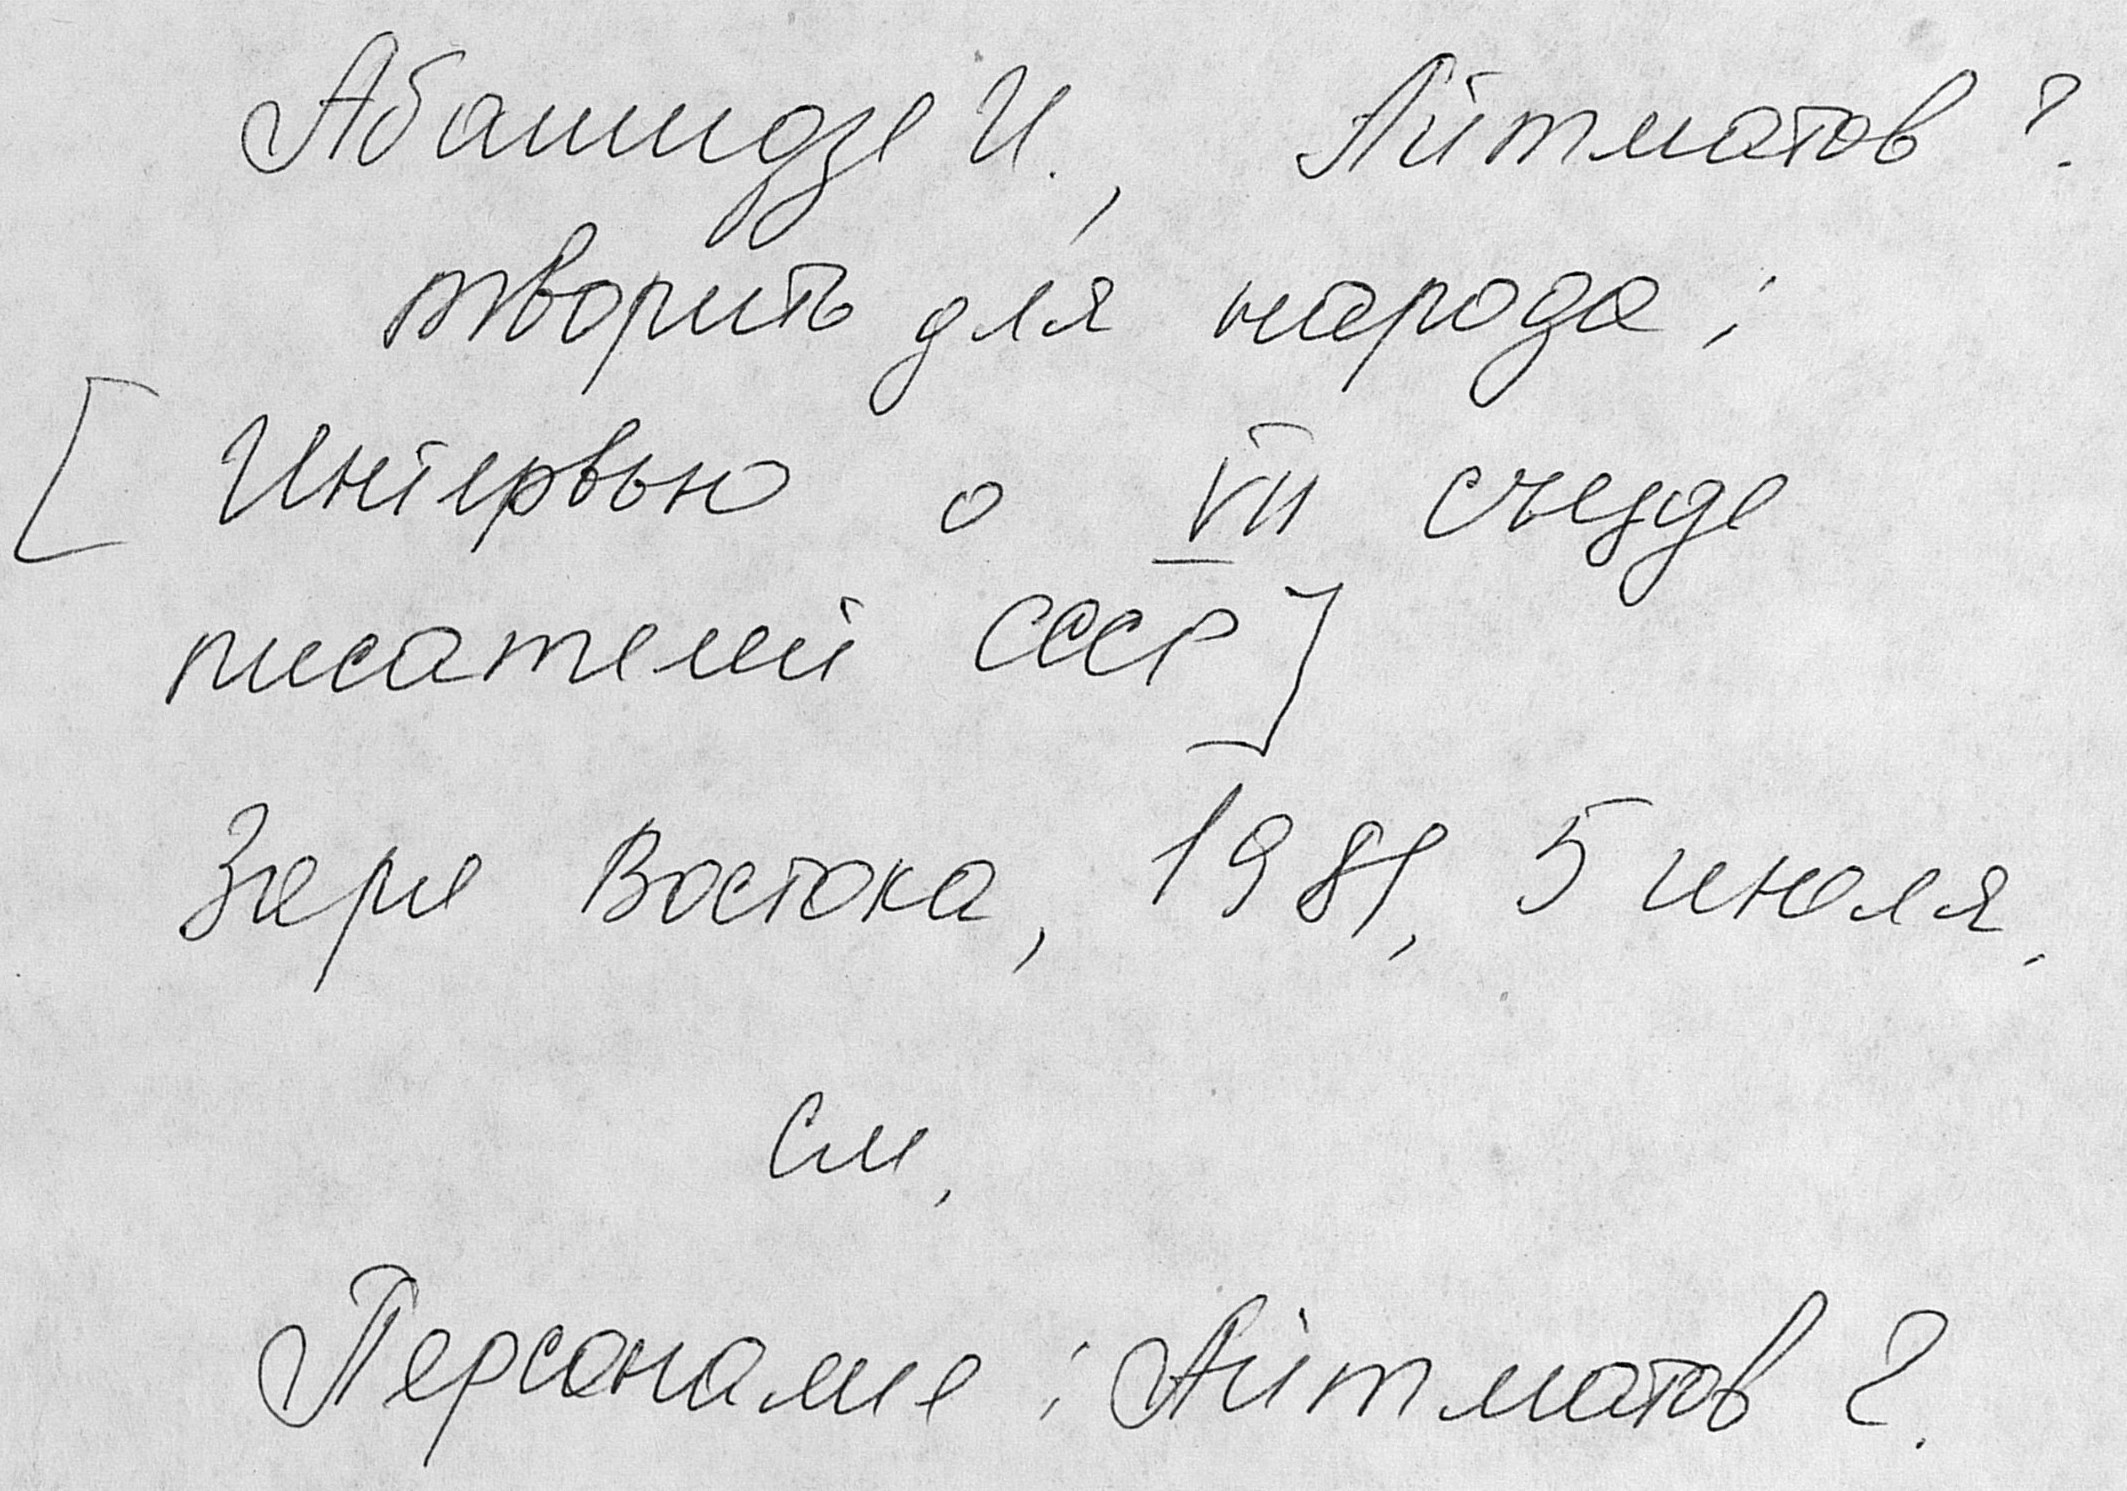 Абашидзе И., Айтматов Ч.
творить для народа:
[Интервью о VII съезде
писателей СССР]
Заря Востока, 1981, 5 июля.
см.
Персоналия: Айтматов Ч.